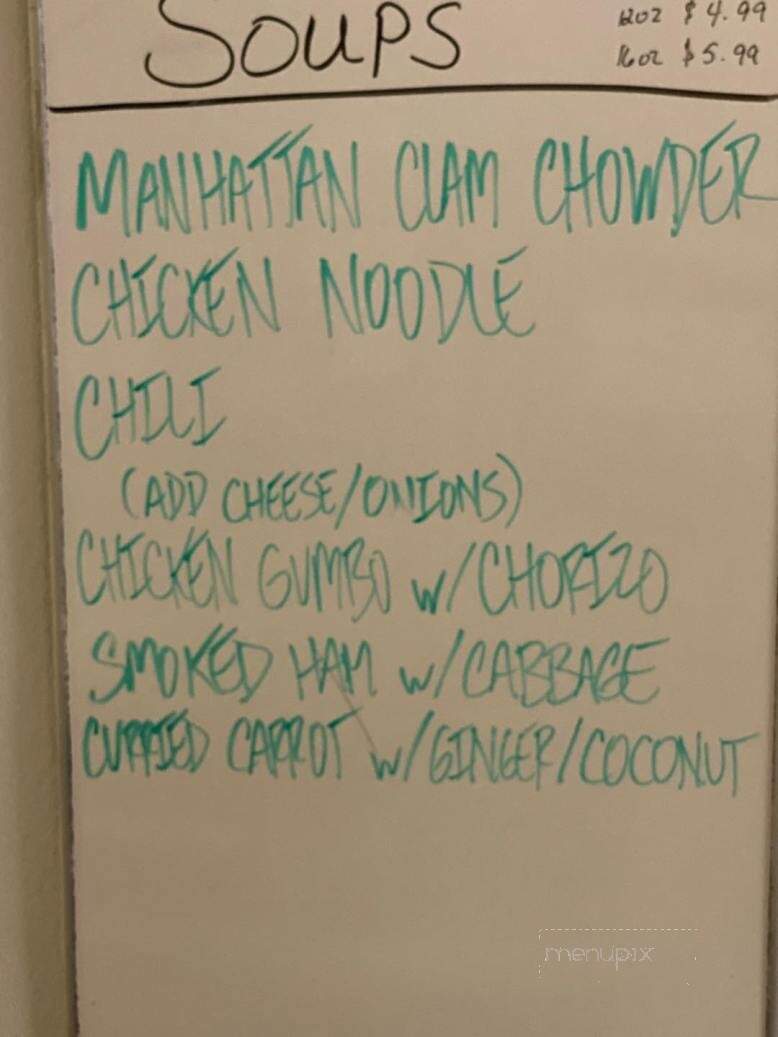 SOUPS
12oz $4.99
16oz $5.99
MANHATTAN CLAM CHOWDER
CHICKEN NOODLE
CHILI
(ADD CHEESE/ONIONS)
CHICKEN GUMBO w/CHORIZO
SMOKED HAM w/CABBAGE
CURRIED CARROT w/GINGER/COCONUT
menupix